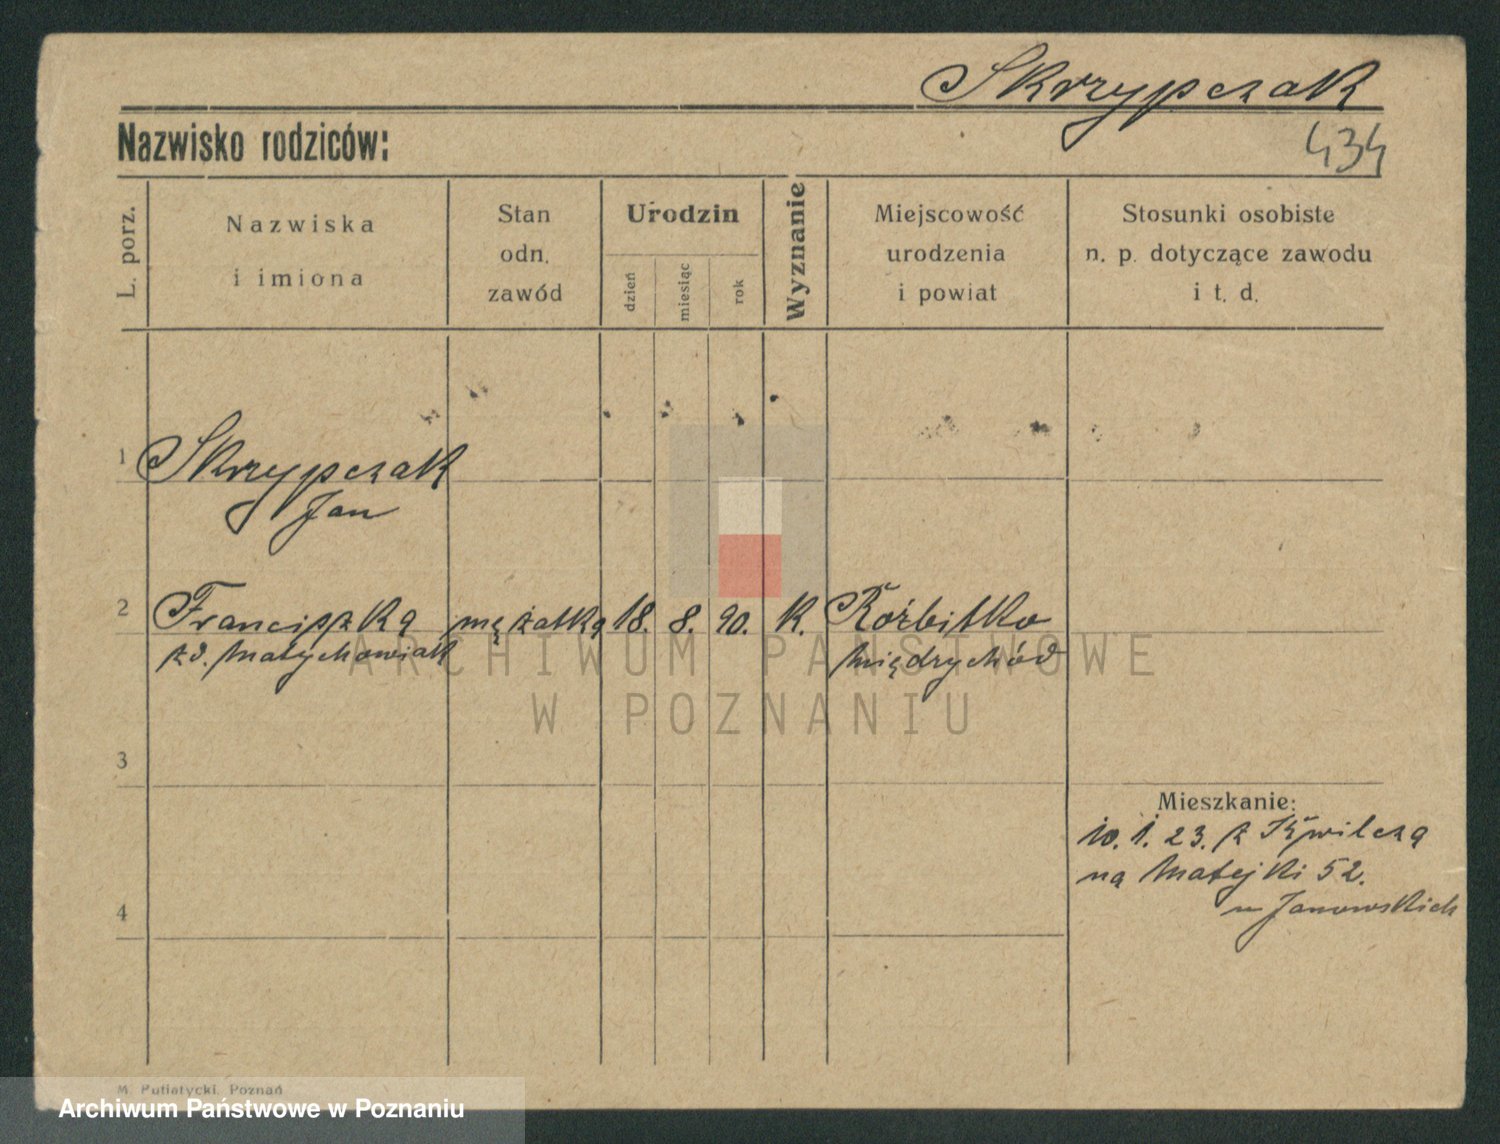 Skrzypczak
Nazwisko rodziców:
434
L. porz.
Nazwiska
i imiona
Stan
odn.
zawód
Urodzin
dzień
miesiąc
rok
Wyznanie
Miejscowość
urodzenia
i powiat
Stosunki osobiste
n. p. dotyczące zawodu
i t. d.
1 Skrzypczak
Jan
2 Franciszka mężatka 18. 8. 90. K. Rożbitko
zd. Matychowiak Międzychód
3
Mieszkanie:
10. 1. 23. z Kwilcza
na Matejki 52.
u Janowskich
4
M. Putiatycki, Poznań
ARCHIWUM PAŃSTWOWE
W POZNANIU
Archiwum Państwowe w Poznaniu